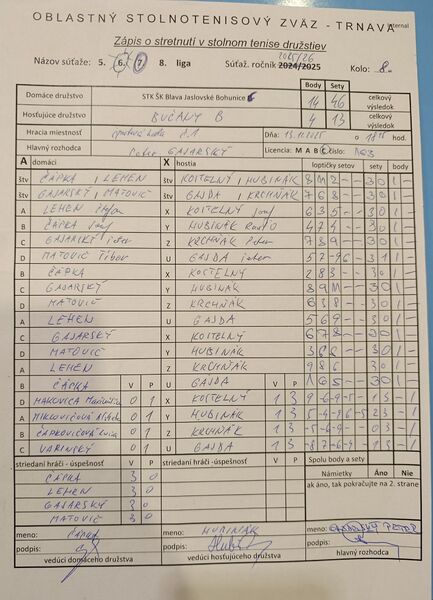 OBLASTNÝ STOLNOTENISOVÝ ZVÄZ - TRNAVA
Internal
Zápis o stretnutí v stolnom tenise družstiev
2025/26
Názov súťaže: 5. 6. 7. 8. liga Súťaž. ročník 2024/2025 Kolo: 8.
Body Sety
Domáce družstvo STK ŠK Blava Jaslovské Bohunice 14 46 celkový výsledok
Hosťujúce družstvo BUČANY B 4 13 celkový výsledok
Hracia miestnosť Dňa: 13.11.2025 o hod.
Hlavný rozhodca Peter GAJARSKÝ Licencia: M A B C číslo:
A domáci X hostia loptičky setov sety body
štv ČAPKA, LEHEN štv KOSTELNÝ, HUBINÁK 3 0 1 -
štv GAJARSKÝ, MATOVIČ štv GAJDA, KRCHNÁK 7 6 8 - - 3 0 1 -
A LEHEN X KOSTELNÝ 6 3 5 - - 3 0 1 -
B ČAPKA Y HUBINÁK 4 7 4 - - 3 0 1 -
C GAJARSKÝ Peter Z KRCHNÁK 7 8 9 - - 3 0 1 -
D MATOVIČ Tibor U GAJDA Peter 5 7 -9 6 - 3 1 1 -
B ČAPKA X KOSTELNÝ 2 8 3 - - 3 0 1 -
C GAJARSKÝ Y HUBINÁK 3 0 1 -
D MATOVIČ Z KRCHNÁK 6 3 8 - - 3 0 1 -
A LEHEN U GAJDA 5 6 9 - - 3 0 1 -
C GAJARSKÝ X KOSTELNÝ 6 7 8 - - 3 0 1 -
D MATOVIČ Y HUBINÁK 3 8 6 - - 3 0 1 -
A LEHEN Z KRCHNÁK 9 8 6 3 0 1 -
B ČAPKA V P U GAJDA V P 1 6 5 - - 3 0 1 -
D MAKOVICA 0 1 X KOSTELNÝ 1 3 -9 -6 9 -5 1 3 - 1
A MIKLOVIČOVÁ 0 1 Y HUBINÁK 1 3 2 3 - 1
B ČAPKOVIČOVÁ 0 1 Z KRCHNÁK 0 3 - 1
C VARINSKÝ 0 1 U GAJDA 1 3 -8 7 -6 -9 1 3 - 1
striedaní hráči - úspešnosť V P striedaní hráči - úspešnosť V P Spolu body a sety
ČAPKA 3 0 Námietky Áno Nie
LEHEN 3 0 ak áno, tak pokračujte na 2. strane
GAJARSKÝ 3 0
MATOVIČ 3 0
meno: ČAPKA meno: HUBINÁK meno: GAJARSKÝ PETER
podpis: podpis: podpis:
vedúci domáceho družstva vedúci hosťujúceho družstva hlavný rozhodca